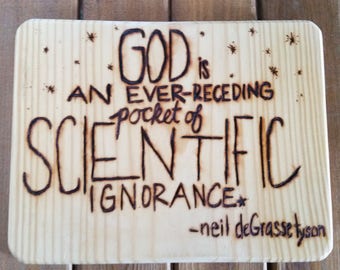 GOD is
AN EVER-RECEDING
pocket of
SCIENTIFIC
IGNORANCE★
-neil deGrassetyson